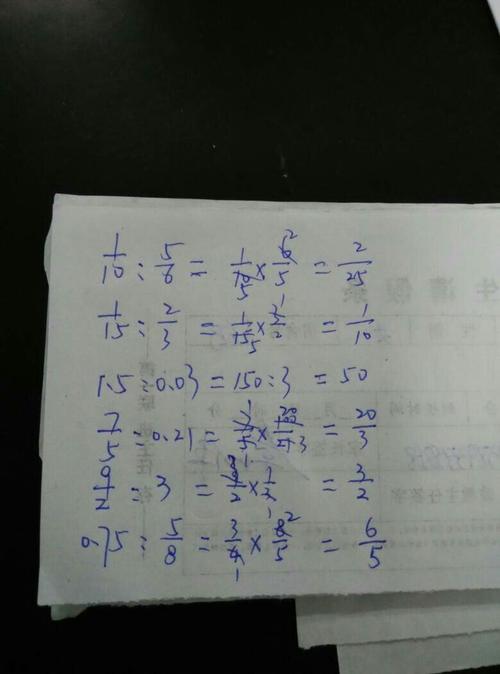 1/10 : 5/6 = 1/10 × 6/5 = 2/25
1/15 : 2/3 = 1/15 × 3/2 = 1/10
1.5 : 0.03 = 150 : 3 = 50
7/5 : 0.21 = 7/5 × 100/21 = 20/3
9/2 : 3 = 9/2 × 1/3 = 3/2
0.75 : 5/8 = 3/4 × 8/5 = 6/5